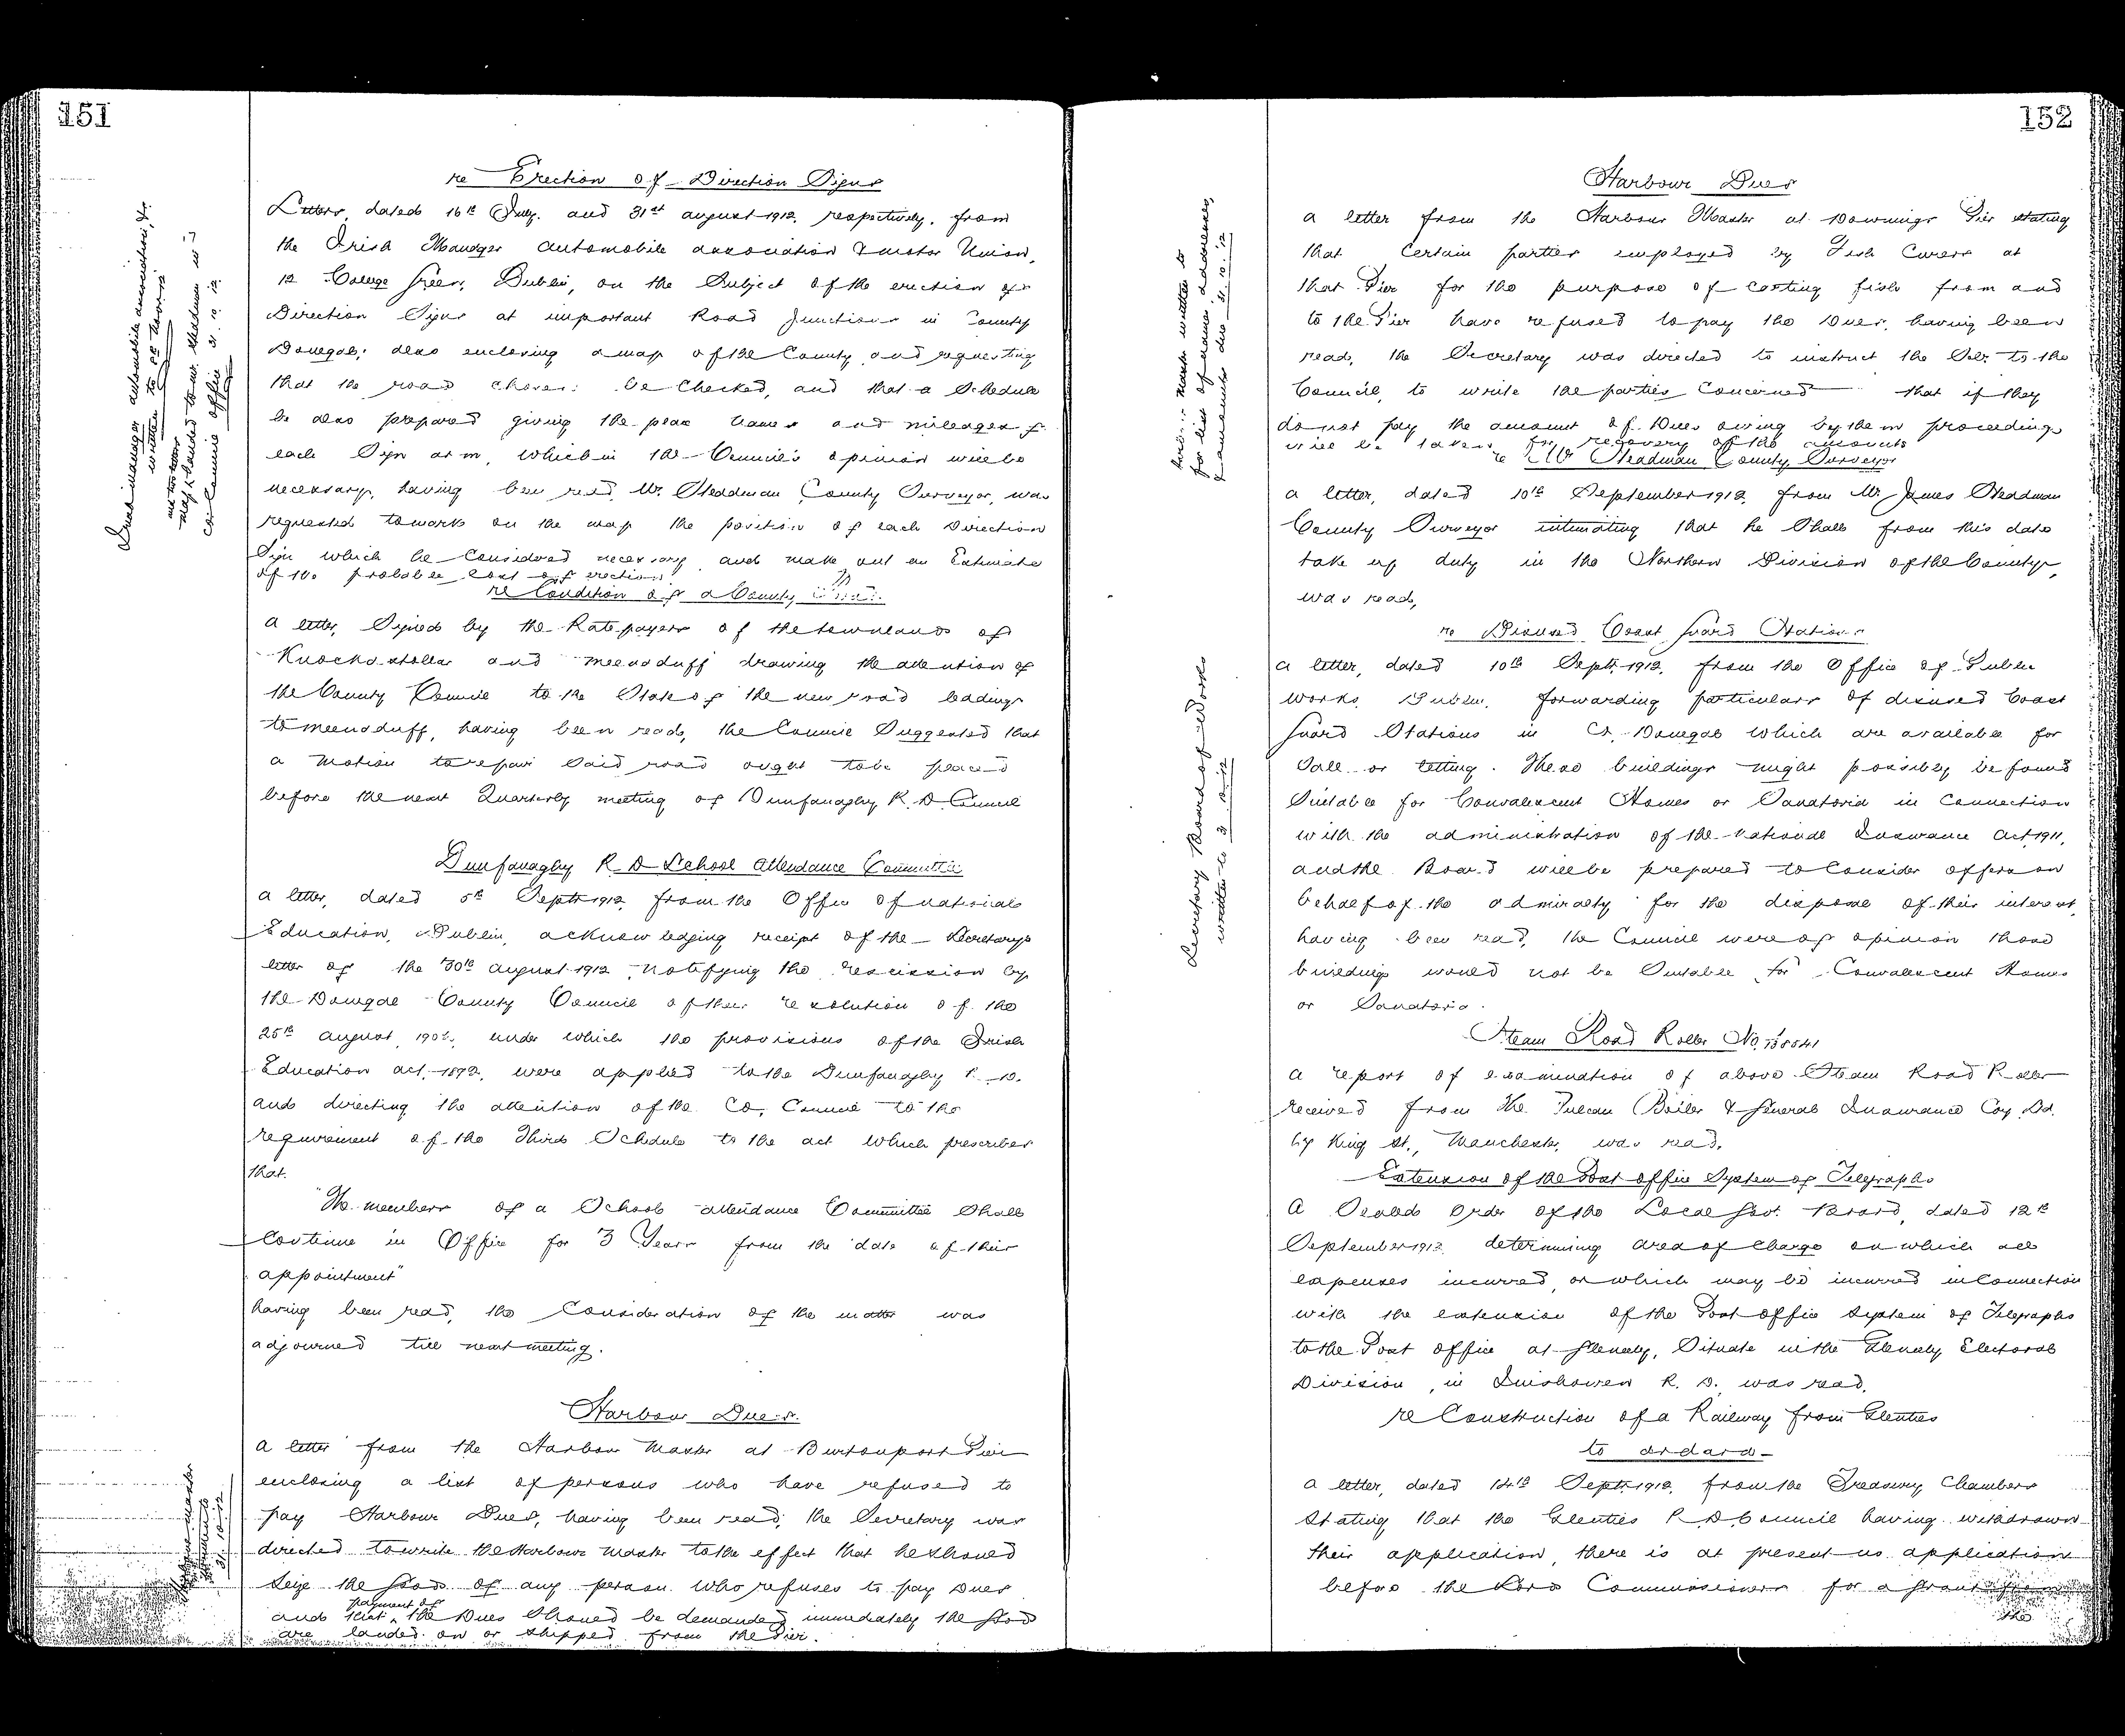 151
re Erection of Direction Signs
Letters, dated 16th July. and 31st August 1912. respectively, from
the Irish Manager Automobile Association & Motor Union,
12 College Green, Dublin, on the Subject of the erection of
Direction Signs at important Road Junctions in County
Donegal; also enclosing a map of the County and requesting
that the road be Checked, and that a Schedule
be also prepared giving the place names and mileages for
each Sign arm, which in the Council's opinion will be
necessary, having been read, Mr. Steadman County Surveyor, was
requested to mark on the map the position of each Direction
Sign which he Considered necessary and make out an Estimate
of the probable Cost of erection
re Condition of a County Road
A letter, Signed by the Ratepayers of the townlands of
Knockastollar and Meenaduff drawing the attention of
the County Council to the State of the new road leading
to Meenaduff, having been read, the Council Suggested that
a Motion to repair Said road ought to be placed
before the next Quarterly meeting of Dunfanaghy R. D. Council
Dunfanaghy R. D School Attendance Committee
A letter, dated 5th Septr. 1912, from the Office of National
Education, Dublin, acknowledging receipt of the Secretary's
letter of the 30th August 1912, notifying the rescission by
the Donegal County Council of their resolution of the
25th August, under which the provisions of the Irish
Education Act, 1892, were applied to the Dunfanaghy R. D.
and directing the attention of the Co. Council to the
requirement of the Third Schedule to the Act which prescribes
that.
"The members of a School Attendance Committee Shall
Continue in Office for 3 Years from the date of their
appointment"
having been read, the Consideration of the matter was
adjourned till next meeting.
Harbour Dues.
A letter from the Harbour Master at Burtonport Pier
enclosing a list of persons who have refused to
pay Harbour Dues, having been read, the Secretary was
directed to write the Harbour Master to the effect that he should
Seize the Goods of any person who refuses to pay Dues
and that payment of the Dues Should be demanded immediately the Goods
are landed on or shipped from the Pier.
Irish Manager Automobile Association, &c.
written to
Map handed to Mr. Steadman in
Co. Council Office 31. 10. 12
152
Harbour Dues
A letter from the Harbour Master at Downings Pier stating
that Certain parties employed by Fish Curers at
that Pier for the purpose of Carting fish from and
to the Pier have refused to pay the Dues, having been
read, the Secretary was directed to instruct the Solr. to the
Council, to write the parties Concerned that if they
do not pay the amount of Dues owing by them proceedings
will be taken for recovery of the amounts
re Mr Steadman County Surveyor
A letter, dated 10th September 1912, from Mr. James Steadman
County Surveyor intimating that he Shall from this date
take up duty in the Northern Division of the County,
was read,
re Disused Coast Guard Stations
A letter, dated 10th Septr. 1912, from the Office of Public
Works, Dublin, forwarding particulars of disused Coast
Guard Stations in Co. Donegal which are available for
Sale or letting. These buildings might possibly be found
Suitable for Convalescent Homes or Sanatoria in Connection
with the administration of the National Insurance Act, 1911,
and the Board will be prepared to Consider offers on
behalf of the Admiralty for the disposal of their interest,
having been read, the Council were of opinion those
buildings would not be Suitable for Convalescent Homes
or Sanatoria.
Steam Road Roller No.
A report of examination of above Steam Road Roller
received from the Vulcan Boiler & General Insurance Coy. Ld.
King St., Manchester, was read.
Extension of the Post Office System of Telegraphs
A Sealed Order of the Local Govt. Board, dated 12th
September 1912, determining area of Charge on which all
expenses incurred, or which may be incurred in Connection
with the extension of the Post Office System of Telegraphs
to the Post Office at Glenely, Situate in the Glenely Electoral
Division, in Inishowen R. D. was read.
re Construction of a Railway from Glenties
to Ardara
A letter, dated 14th Septr. 1912, from the Treasury Chambers
Stating that the Glenties R D Council having withdrawn
their application, there is at present no application
before the Lords Commissioners for a Grant
the
Harbour Master written to
for list of names, addresses,
31. 10. 12
Secretary Board of Works
written to